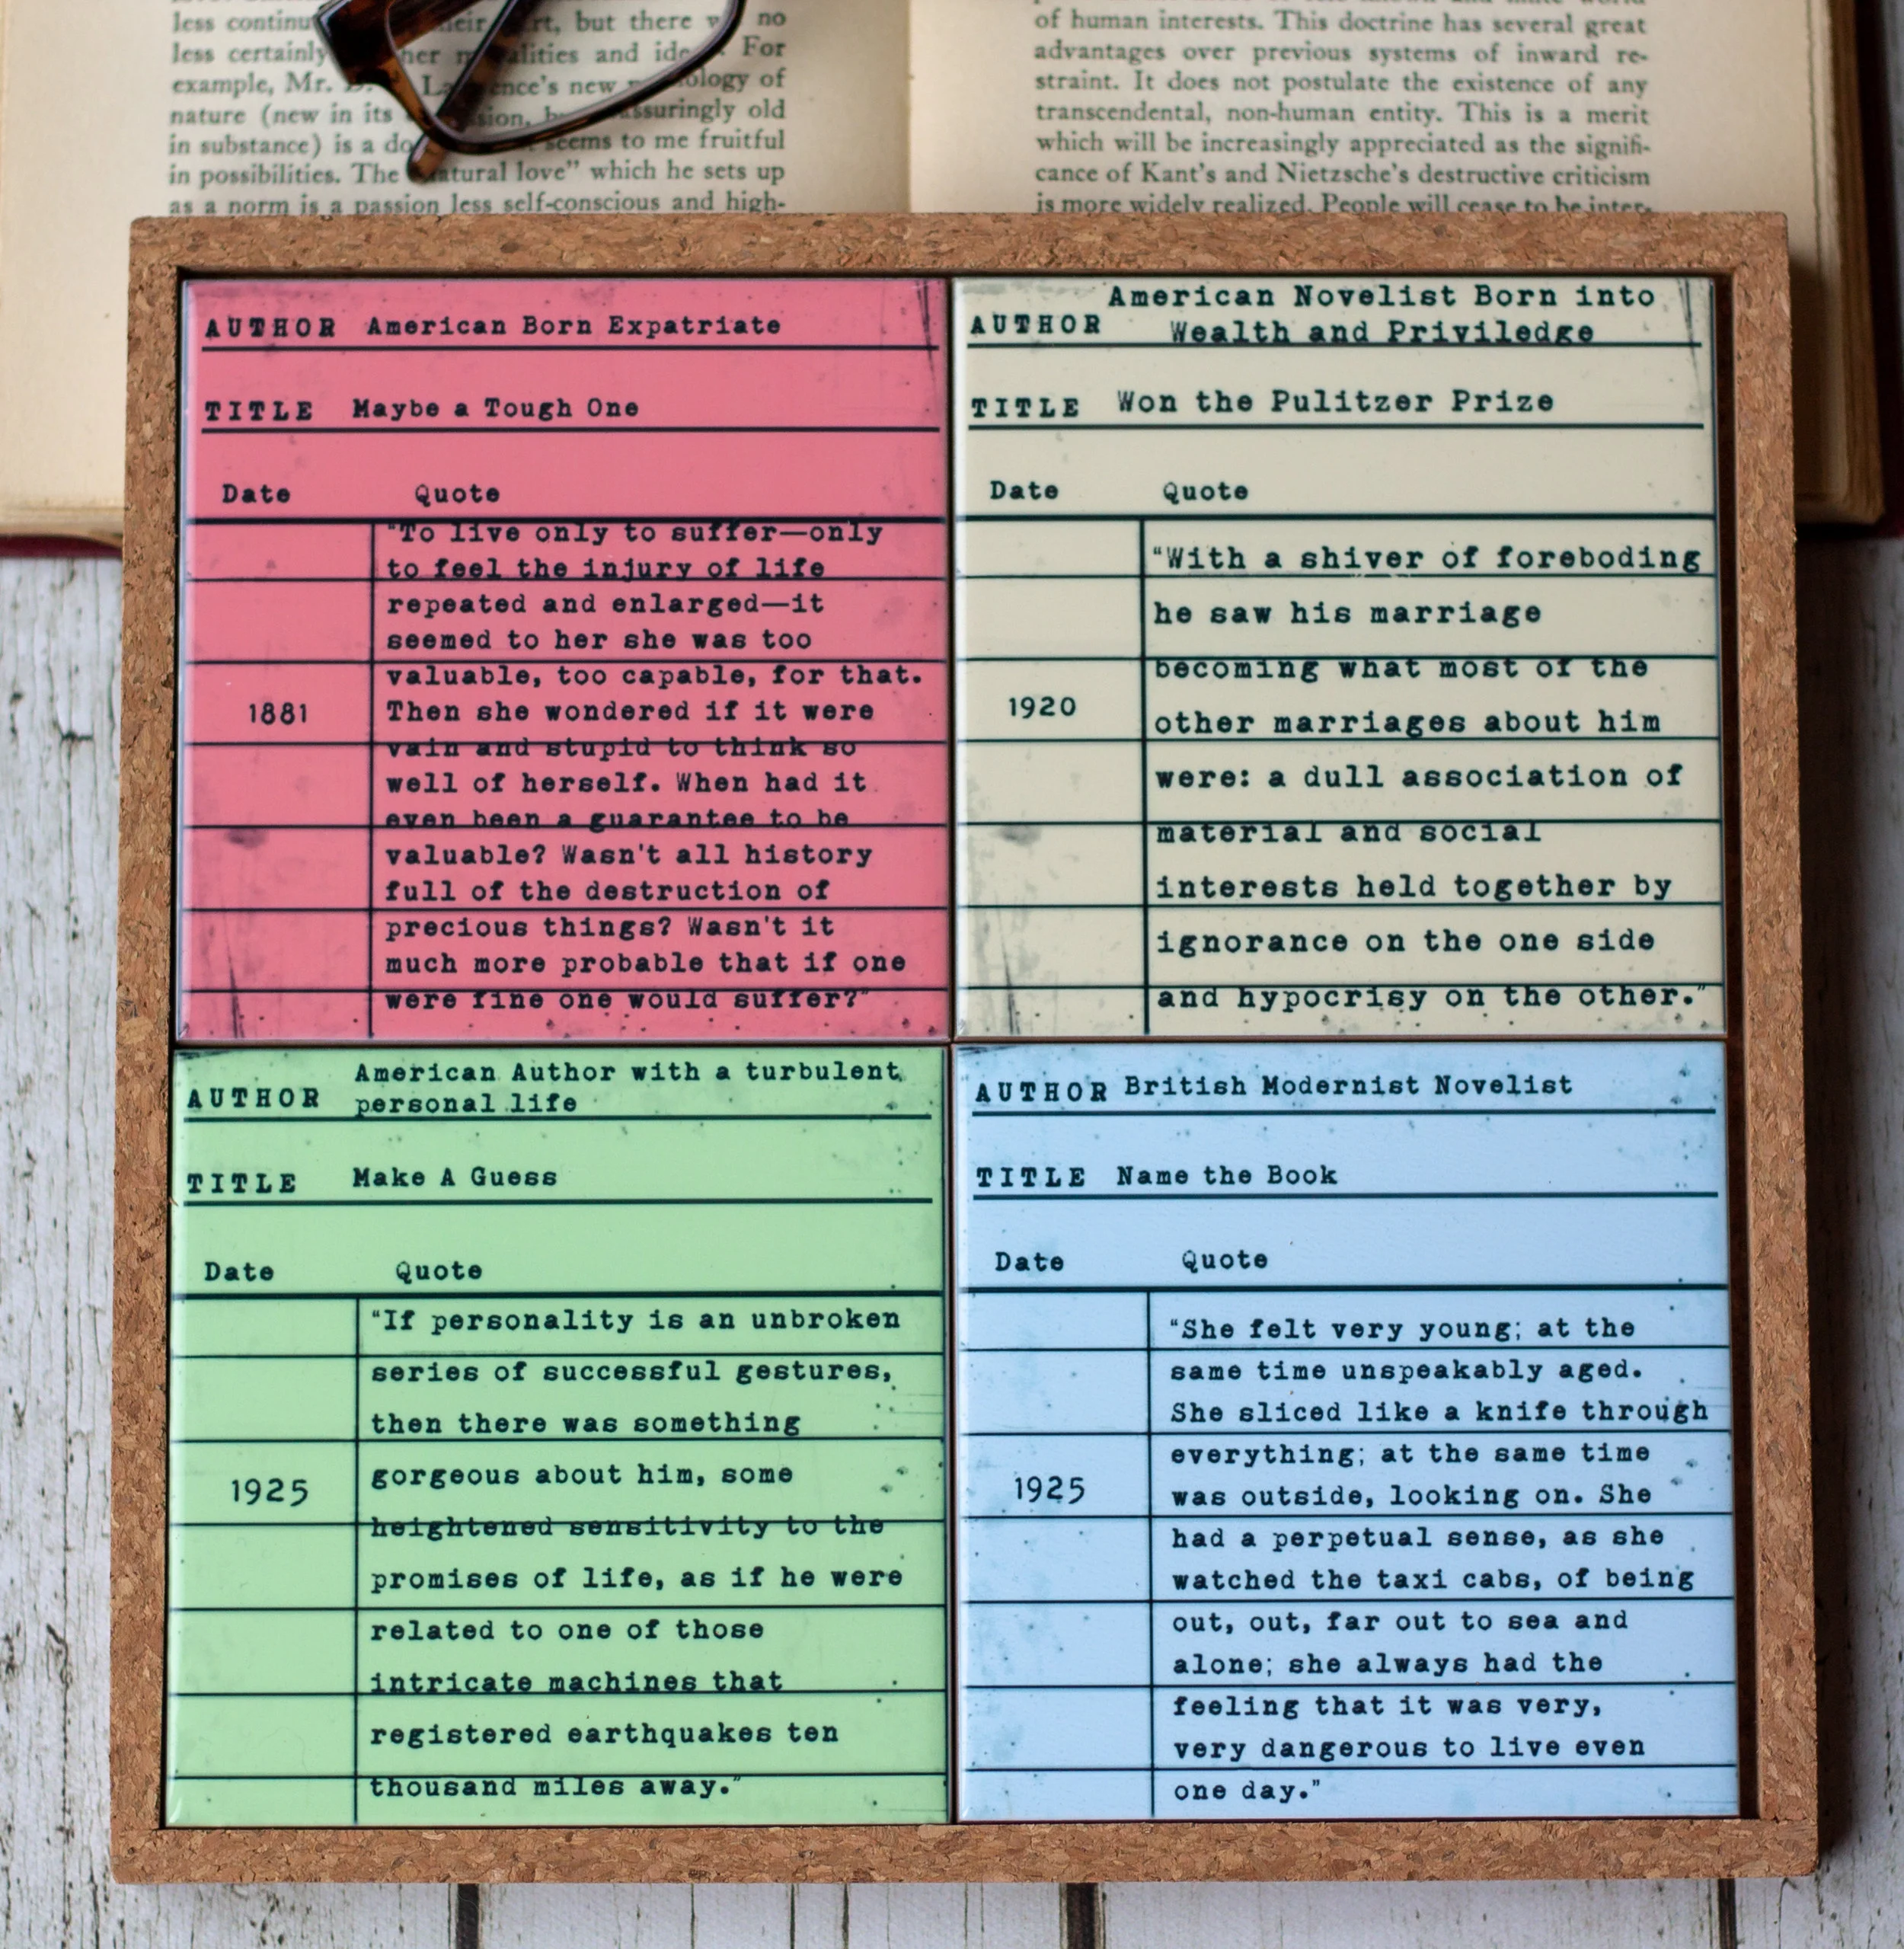 less continu their art, but there no
less certainly her and For
example, Mr. ence's new ology of
nature (new in its ssuringly old
in substance) is a seems to me fruitful
in possibilities. The "natural love" which he sets up
as a norm is a passion less self-conscious and high-
of human interests. This doctrine has several great
advantages over previous systems of inward re-
straint. It does not postulate the existence of any
transcendental, non-human entity. This is a merit
which will be increasingly appreciated as the signifi-
cance of Kant's and Nietzsche's destructive criticism
is more widely realized. People will cease to be inter-
AUTHOR American Born Expatriate
TITLE Maybe a Tough One
Date Quote
"To live only to suffer—only
to feel the injury of life
repeated and enlarged—it
seemed to her she was too
valuable, too capable, for that.
1881 Then she wondered if it were
vain and stupid to think so
well of herself. When had it
even been a guarantee to be
valuable? Wasn't all history
full of the destruction of
precious things? Wasn't it
much more probable that if one
were fine one would suffer?"
American Novelist Born into
AUTHOR Wealth and Priviledge
TITLE Won the Pulitzer Prize
Date Quote
"With a shiver of foreboding
he saw his marriage
becoming what most of the
1920 other marriages about him
were: a dull association of
material and social
interests held together by
ignorance on the one side
and hypocrisy on the other."
American Author with a turbulent
AUTHOR personal life
TITLE Make A Guess
Date Quote
"If personality is an unbroken
series of successful gestures,
then there was something
gorgeous about him, some
1925
heightened sensitivity to the
promises of life, as if he were
related to one of those
intricate machines that
registered earthquakes ten
thousand miles away."
AUTHOR British Modernist Novelist
TITLE Name the Book
Date Quote
"She felt very young; at the
same time unspeakably aged.
She sliced like a knife through
everything; at the same time
1925 was outside, looking on. She
had a perpetual sense, as she
watched the taxi cabs, of being
out, out, far out to sea and
alone; she always had the
feeling that it was very,
very dangerous to live even
one day."